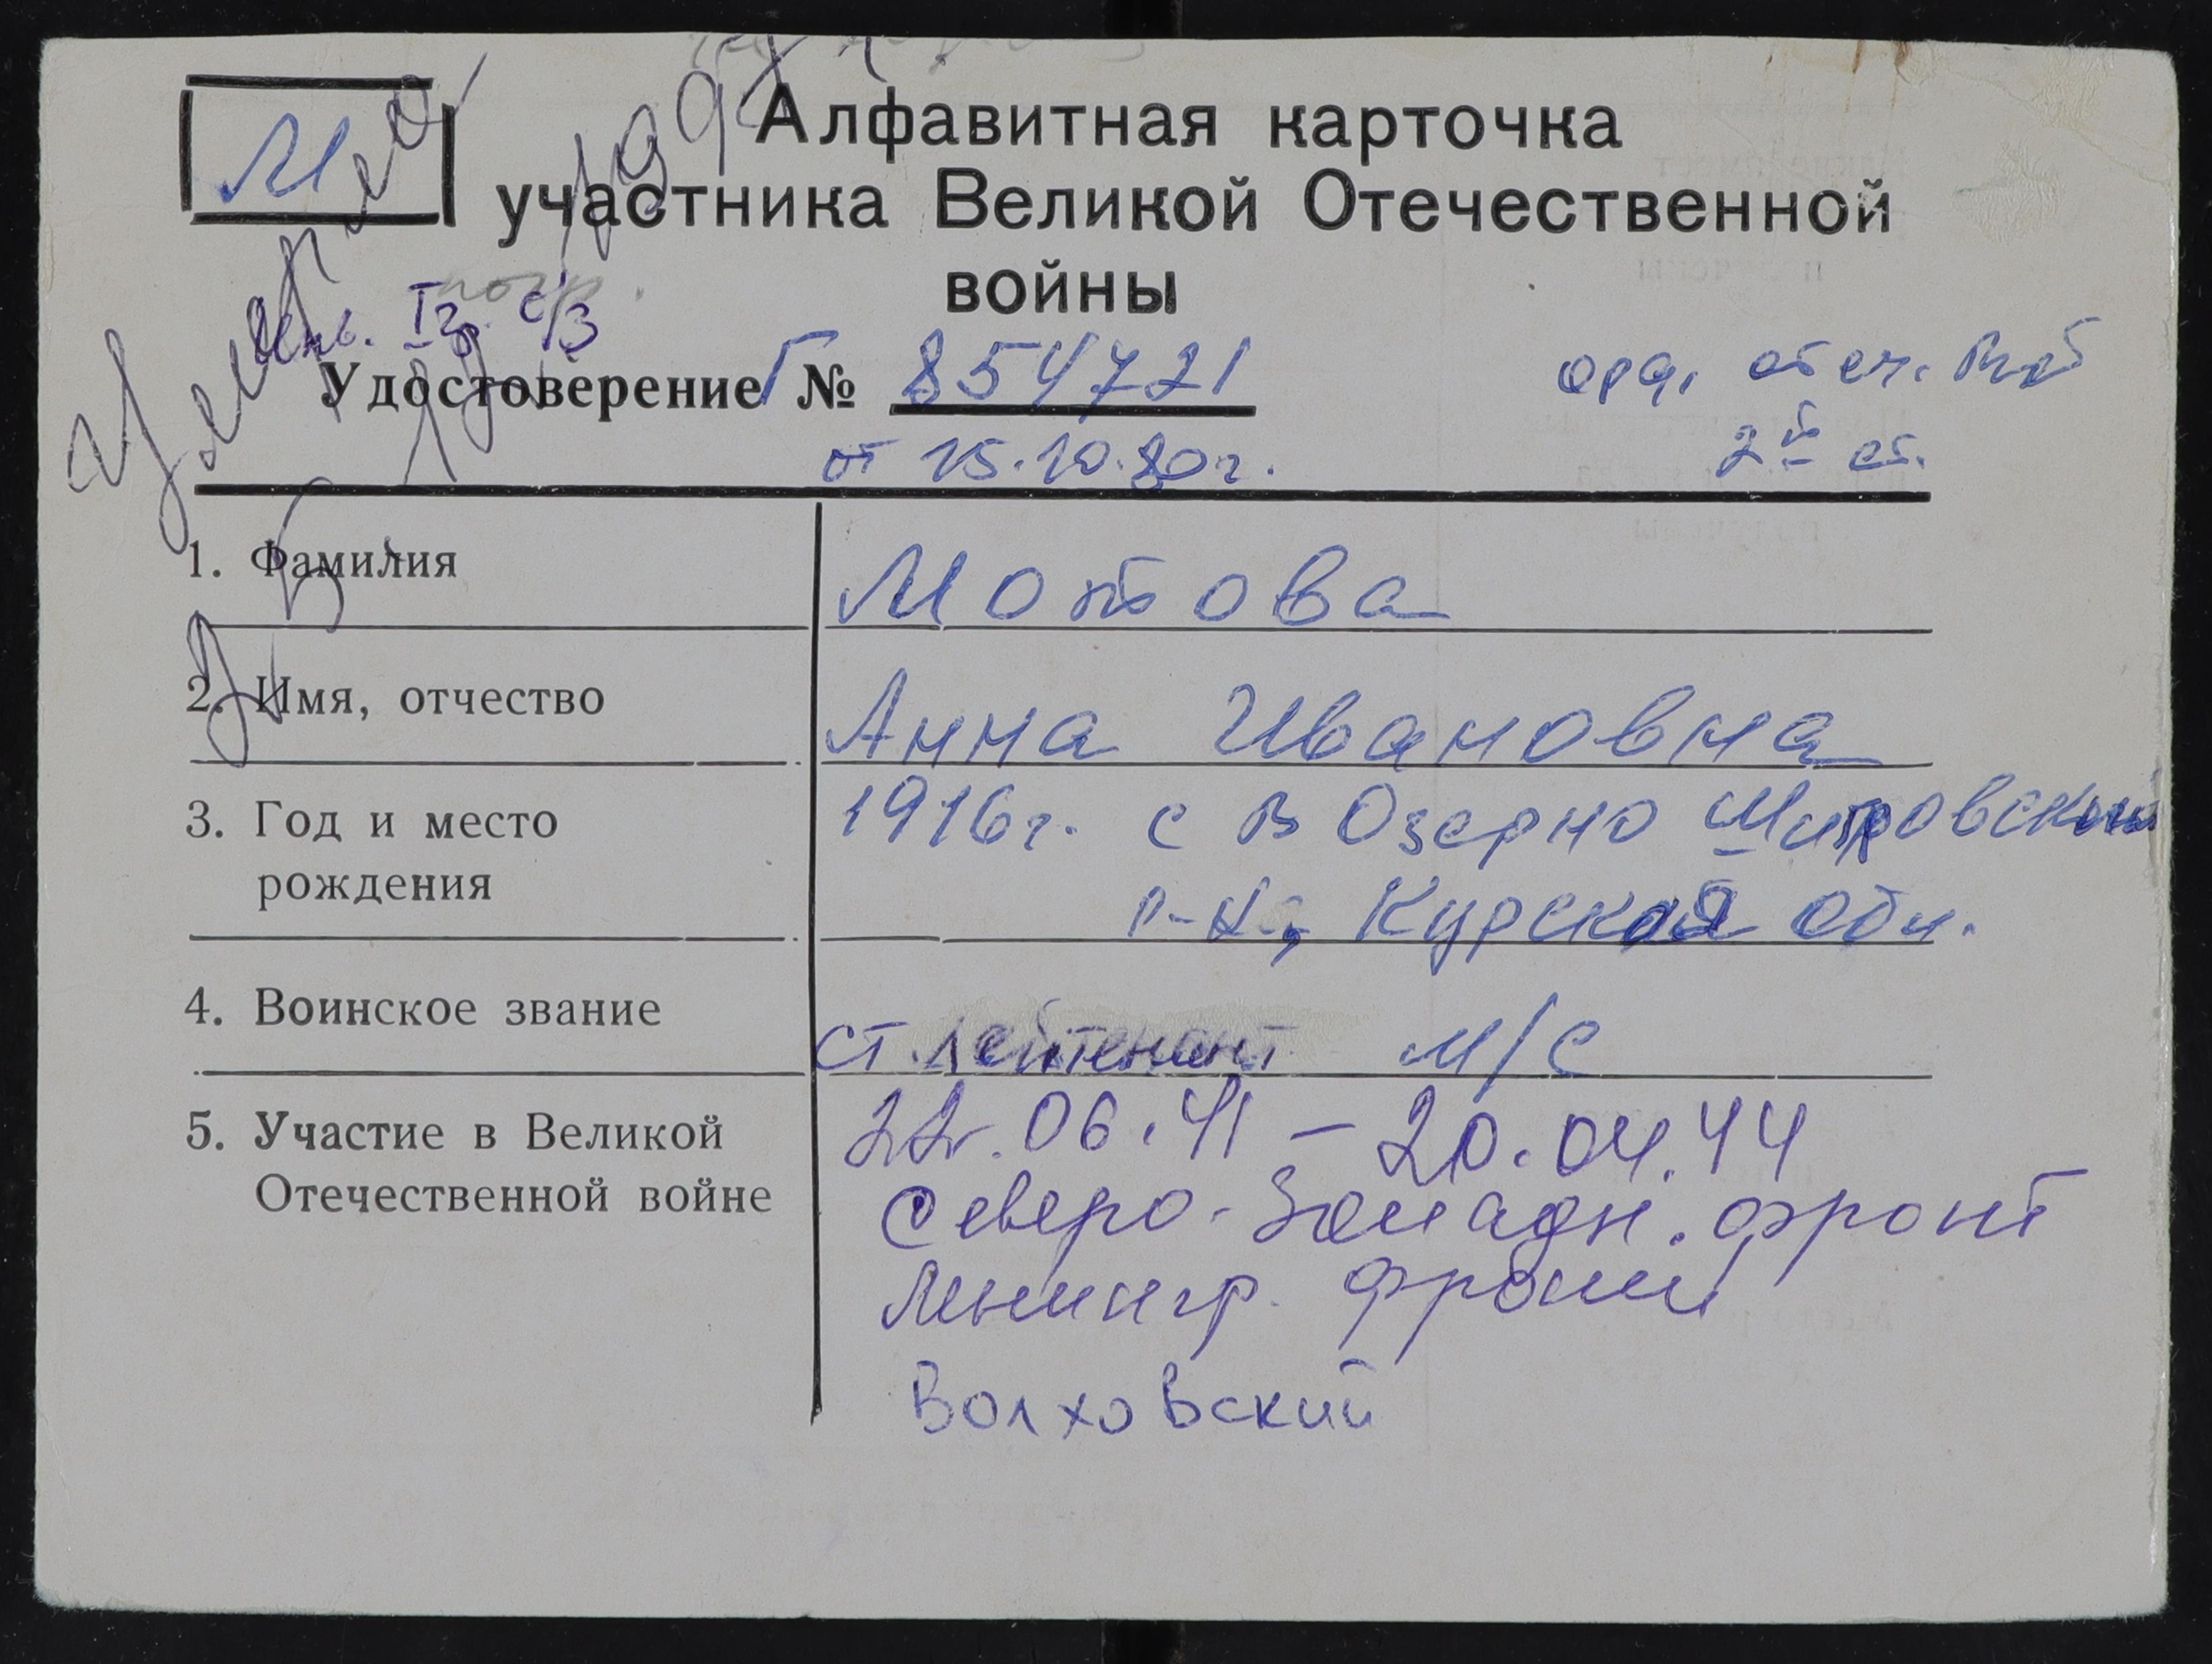 М
Алфавитная карточка
участника Великой Отечественной
войны
I г. с/з
Удостоверение Г № 854721
от 15.10.80 г.
орд. отеч.
2й ст.
1. Фамилия
Мотова
2. Имя, отчество
Анна Ивановна
3. Год и место
рождения
1916 г. с В Озерно
р-на, Курской обл.
4. Воинское звание
ст. лейтенант м/с
5. Участие в Великой
Отечественной войне
22.06.41 – 20.04.44
Северо-Западн. фронт
Ленингр. фронт
Волховский